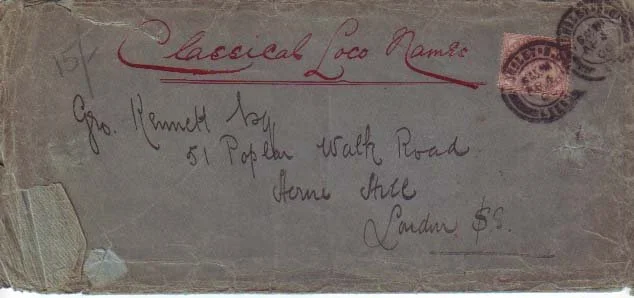 Classical Loco Names
15/-
Geo. Kennett Esq
51 Poplar Walk Road
Herne Hill
London S.E.